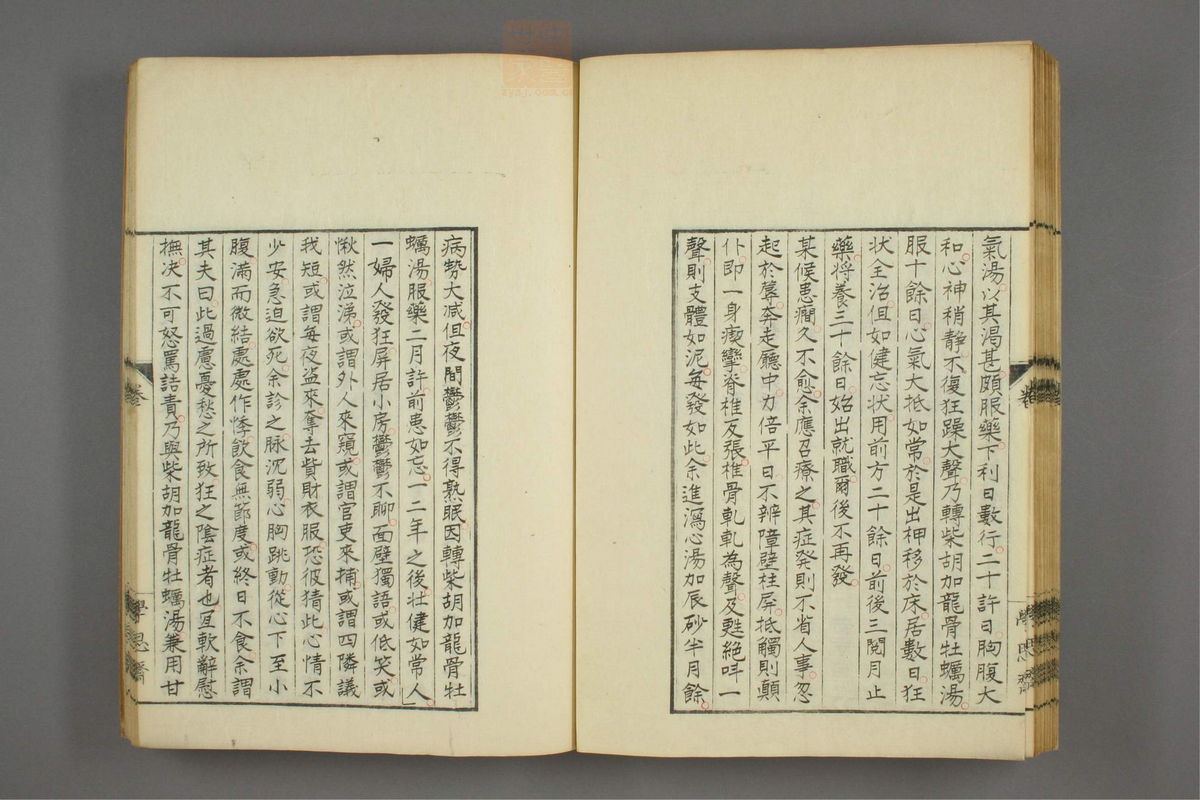 氣湯以其渴甚頗服藥下利日數行二十許日胸腹大
和心神稍静不復狂躁大聲乃轉柴胡加龍骨牡蠣湯
服十餘日心氣大抵如常於是出柙移於床居數日狂
状全治但如健忘状用前方二十餘日前後三閱月止
藥将養三十餘日始出就職爾後不再發
某候患癇久不愈余應召療之其症発則不省人事忽
起於蓐奔走廳中力倍平日不辨障壁柱屏抵觸則顛
仆即一身瘈攣脊椎反張椎骨軋軋為聲及甦絕叫一
聲則支體如泥每發如此余進瀉心湯加辰砂半月餘
病勢大减但夜間鬱鬱不得熟眠因轉柴胡加龍骨牡
蠣湯服藥二月許前患如忘一二年之後壮健如常人
一婦人發狂屏居小房鬱鬱不聊面壁獨語或低笑或
愀然泣涕或謂外人來窺或謂官吏來捕或謂四隣議
我短或謂每夜盜來奪去貲財衣服恐彼猜此心情不
少安急迫欲死余診之脉沉弱心胸跳動從心下至小
腹滿而微結處處作悸飲食無節度或終日不食余謂
其夫曰此過慮憂愁之所致狂之陰症者也宜軟辭慰
撫决不可怒罵詰責乃與柴胡加龍骨牡蠣湯兼用甘
卷三
學思齋
八
zyzj.com.cn